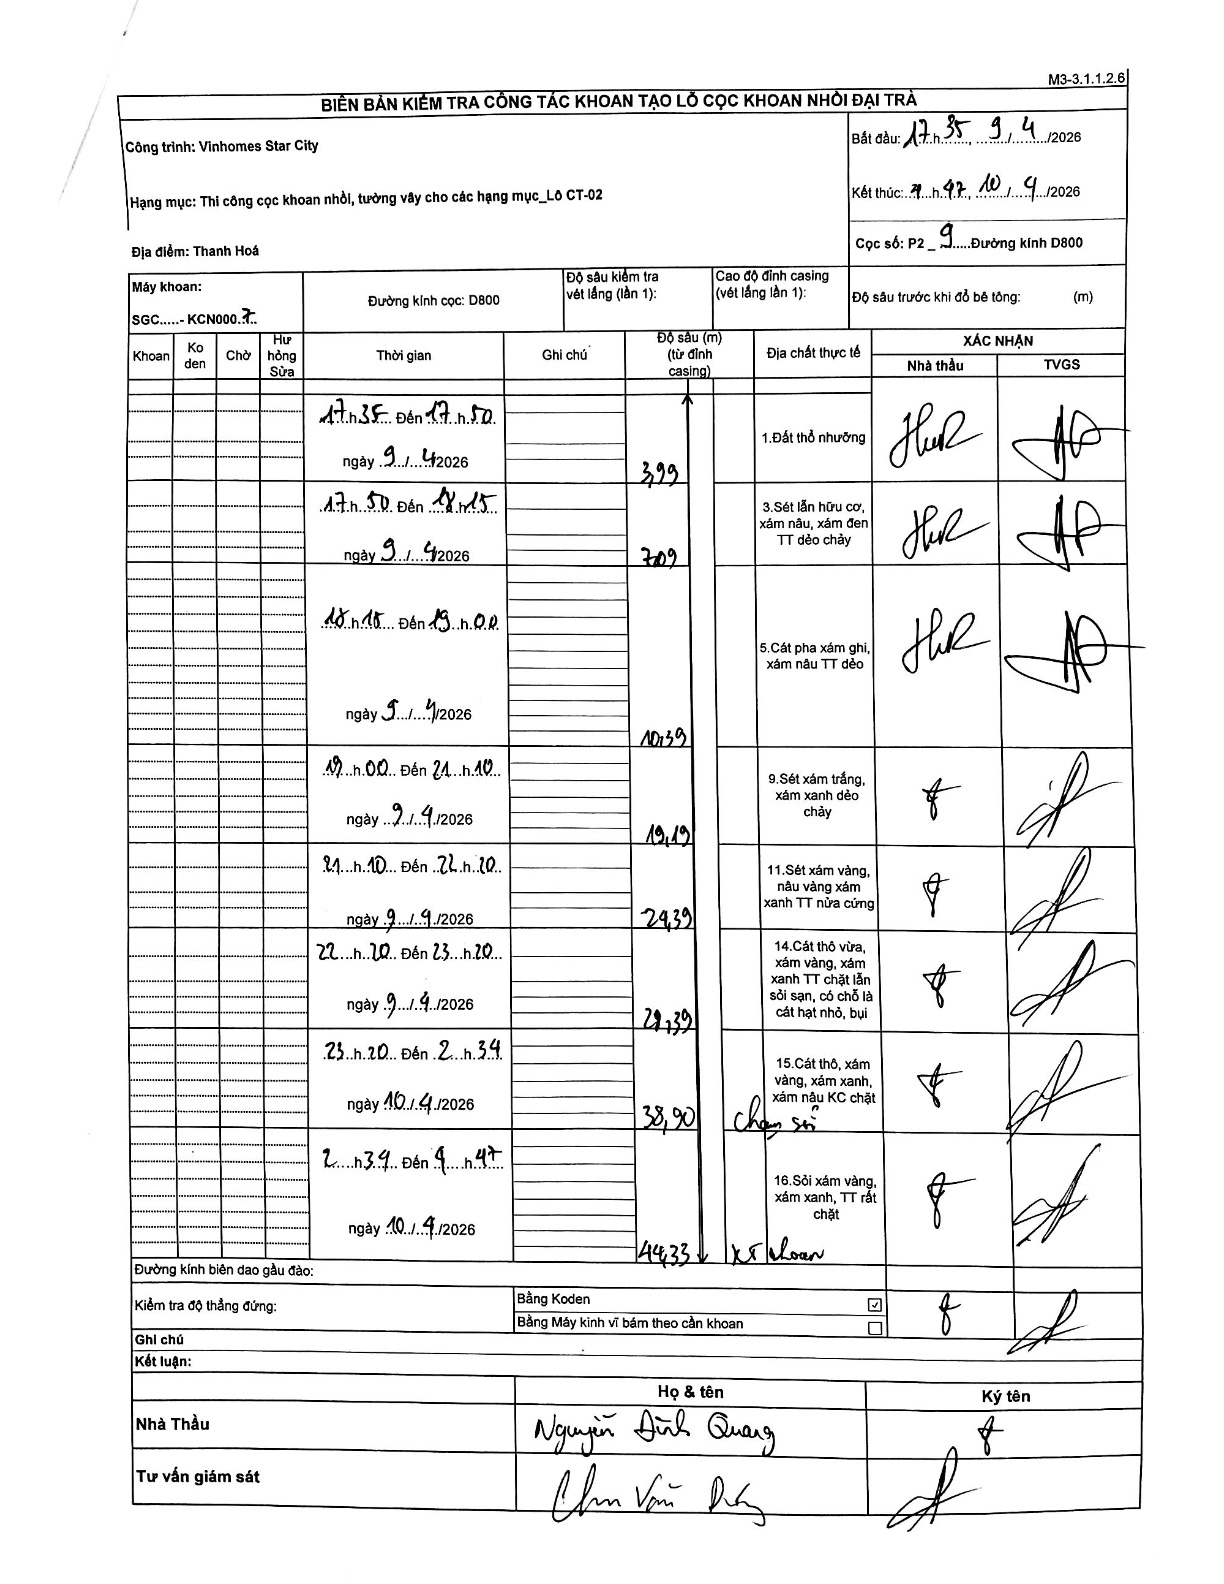 M3-3.1.1.2.6
BIÊN BẢN KIỂM TRA CÔNG TÁC KHOAN TẠO LỖ CỌC KHOAN NHỒI ĐẠI TRÀ
Công trình: Vinhomes Star City
Hạng mục: Thi công cọc khoan nhồi, tường vây cho các hạng mục_Lô CT-02
Địa điểm: Thanh Hoá
Bắt đầu: 17.h.35, 9/4/2026
Kết thúc: 4.h.47, 10/4/2026
Cọc số: P2_9.....Đường kính D800
Máy khoan:
SGC.....- KCN000.7.
Đường kính cọc: D800
Độ sâu kiểm tra
vét lắng (lần 1):
Cao độ đỉnh casing
(vét lắng lần 1):
Độ sâu trước khi đổ bê tông: (m)
Khoan Ko đen Chờ Hư hỏng Sửa Thời gian Ghi chú Độ sâu (m) (từ đỉnh casing) Địa chất thực tế XÁC NHẬN
Nhà thầu TVGS
17.h35... Đến 17..h.50.
ngày .9.../....4/2026
3,99
1.Đất thổ nhưỡng
17.h..50. Đến 18.h15...
ngày 9.../...4/2026
7,09
3.Sét lẫn hữu cơ,
xám nâu, xám đen
TT dẻo chảy
18.h15... Đến 19..h.00.
ngày 9.../...4/2026
10,39
5.Cát pha xám ghi,
xám nâu TT dẻo
19..h.00.. Đến 21...h.10..
ngày ..9../...4./2026
19,19
9.Sét xám trắng,
xám xanh dẻo
chảy
21...h..10... Đến ..22..h..20..
ngày .9.../...4/2026
24,39
11.Sét xám vàng,
nâu vàng xám
xanh TT nửa cứng
22...h..20.. Đến 23...h.20...
ngày .9..../..4./2026
29,39
14.Cát thô vừa,
xám vàng, xám
xanh TT chặt lẫn
sỏi sạn, có chỗ là
cát hạt nhỏ, bụi
23..h.20.. Đến .2...h.34
ngày .10../.4./2026
38,90
15.Cát thô, xám
vàng, xám xanh,
xám nâu KC chặt
Chạm sỏi
2....h34.. Đến 4....h.47
ngày .10../.4./2026
44,33
16.Sỏi xám vàng,
xám xanh, TT rất
chặt
KT khoan
Đường kính biên dao gầu đào:
Kiểm tra độ thẳng đứng:
Bằng Koden ☑
Bằng Máy kinh vĩ bám theo cần khoan ☐
Ghi chú
Kết luận:
Họ & tên Ký tên
Nhà Thầu Nguyễn Đình Quang
Tư vấn giám sát Chu Văn